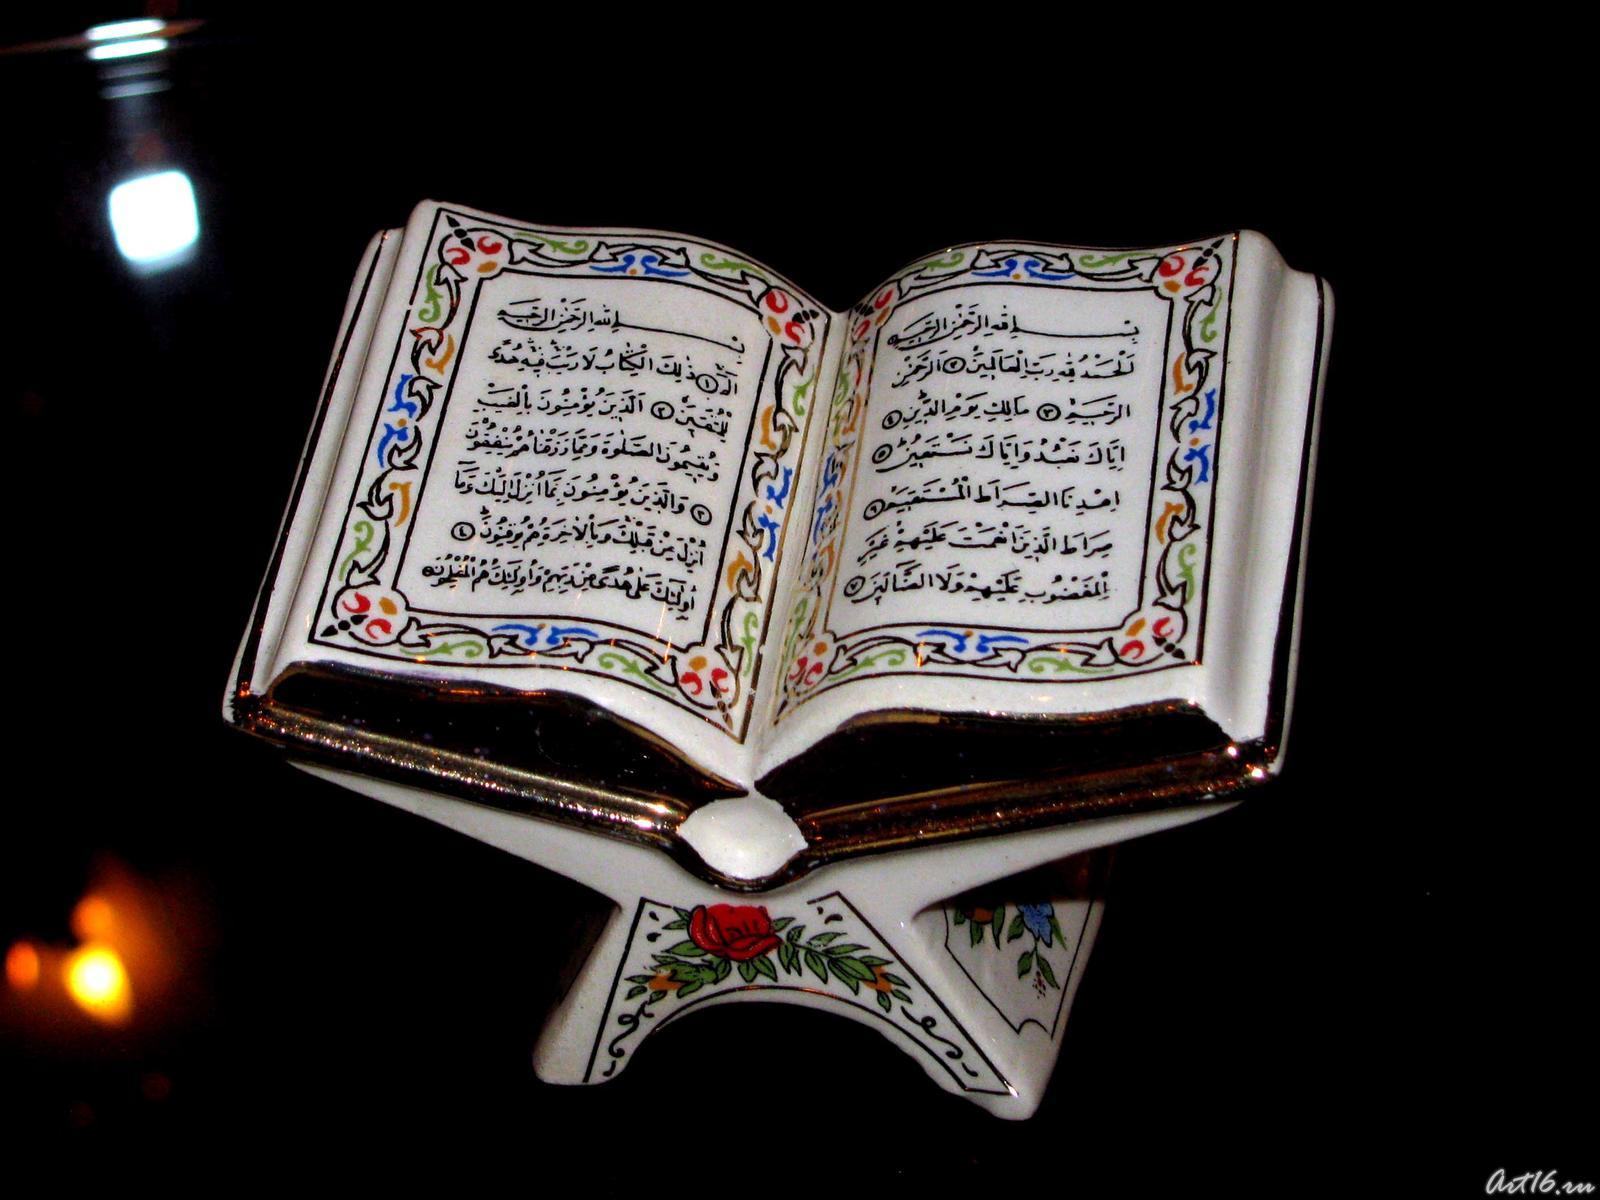 بسم الله الرحمن الرحيم
الحمد لله رب العالمين ٢ الرحمن
الرحيم ٣ مالك يوم الدين ٤
اياك نعبد واياك نستعين ٥
اهدنا الصراط المستقيم ٦
صراط الذين انعمت عليهم غير
المغضوب عليهم ولا الضالين ٧
بسم الله الرحمن الرحيم
الم ١ ذلك الكتاب لا ريب فيه هدى
للمتقين ٢ الذين يؤمنون بالغيب
ويقيمون الصلوة ومما رزقناهم ينفقون
٣ والذين يؤمنون بما انزل اليك وما
انزل من قبلك وبالاخرة هم يوقنون ٤
اولئك على هدى من ربهم واولئك هم المفلحون ٥
Art16.ru